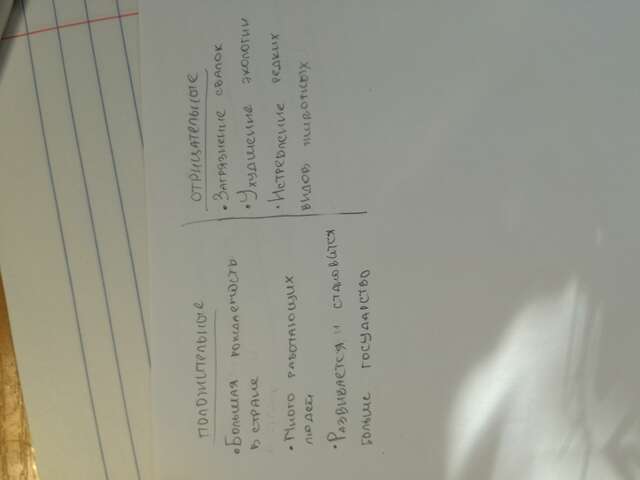 ПОЛОЖИТЕЛЬНОЕ
• БОЛЬШАЯ РОЖДАЕМОСТЬ
В СТРАНЕ
• МНОГО РАБОТАЮЩИХ
ЛЮДЕЙ
• РАЗВИВАЕТСЯ И СТАНОВИТСЯ
БОЛЬШЕ ГОСУДАРСТВО
ОТРИЦАТЕЛЬНОЕ
• ЗАГРЯЗНЕНИЕ СВАЛОК
• УХУДШЕНИЕ ЭКОЛОГИИ
• ИСТРЕБЛЕНИЕ РЕДКИХ
ВИДОВ ЖИВОТНЫХ